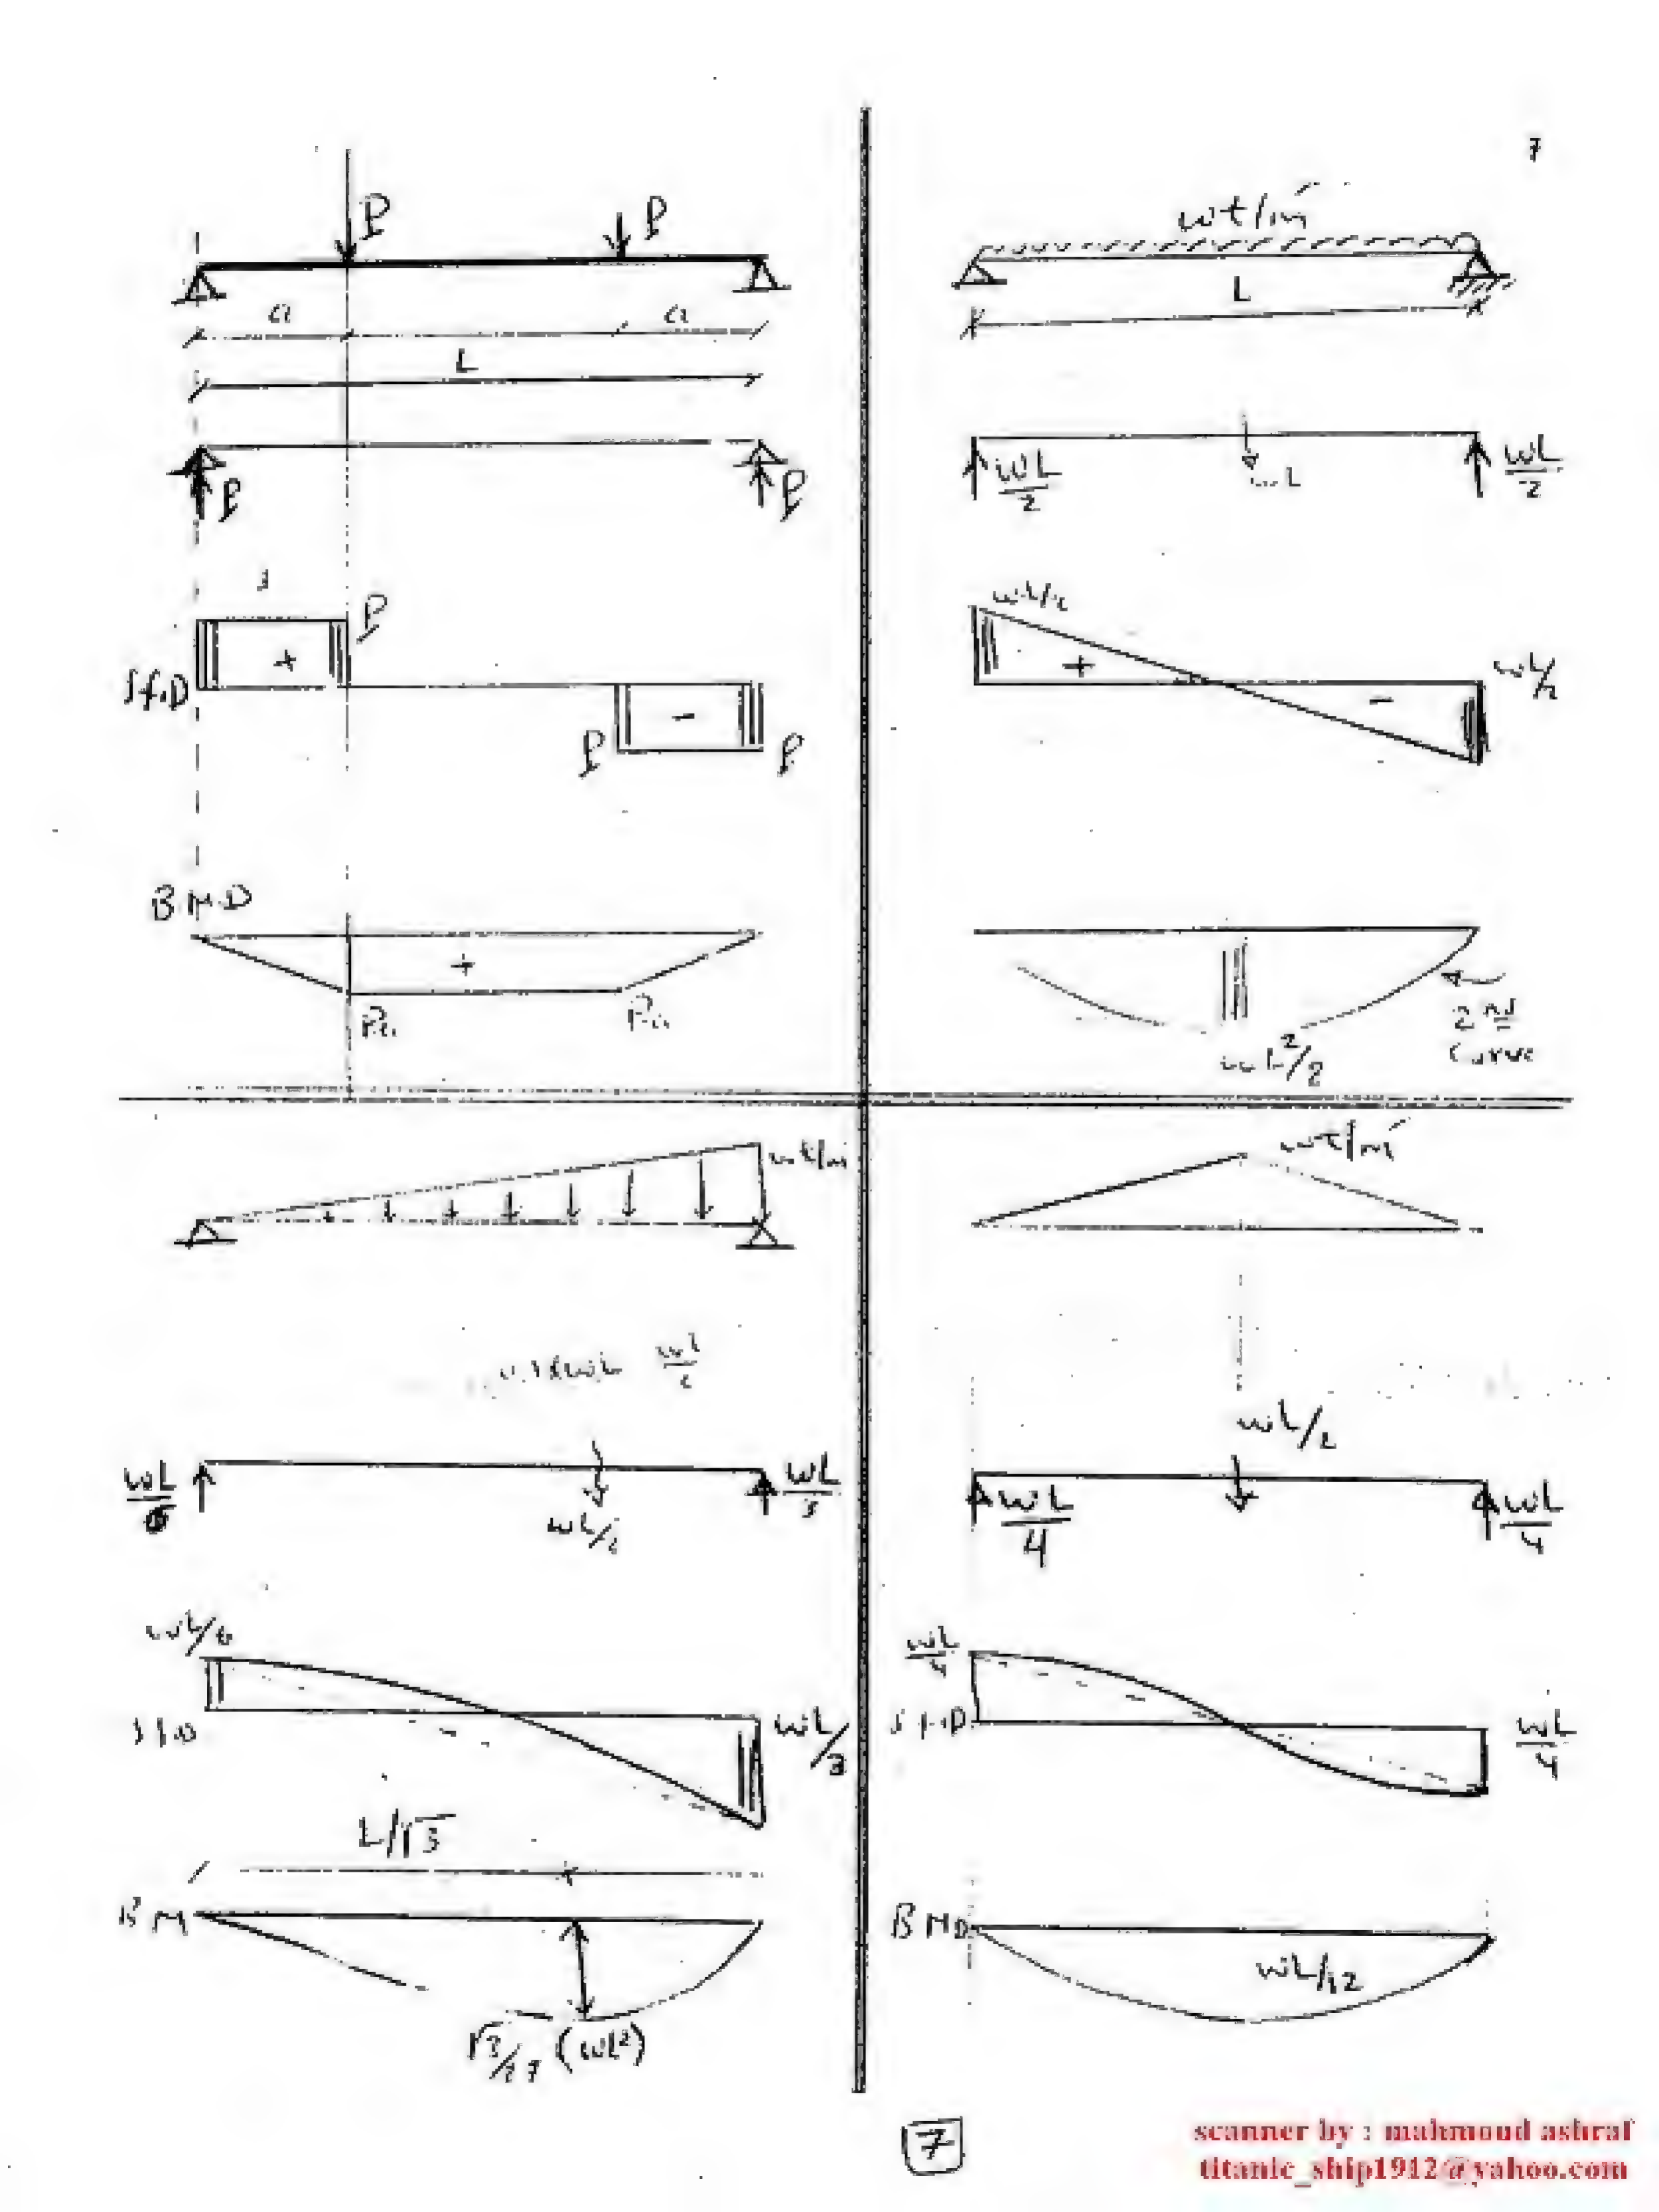 7
P
P
a
a
L
P
P
P
S.F.D
+
-
P
P
B.M.D
+
Pa
Pa
wt/m'
L
wL/2
wL
wL/2
wL/2
+
-
wL/2
wL²/8
2nd
curve
wt/m
wL
wL/2
wL/3
wL/6
S.F.D
wL/3
L/√3
BM
(wL²)
wt/m'
wL/2
wL/4
wL/4
wL/4
S.F.D
wL/4
BMD
wL/12
7
scanner by : mahmoud ashraf
titanic_ship1912@yahoo.com